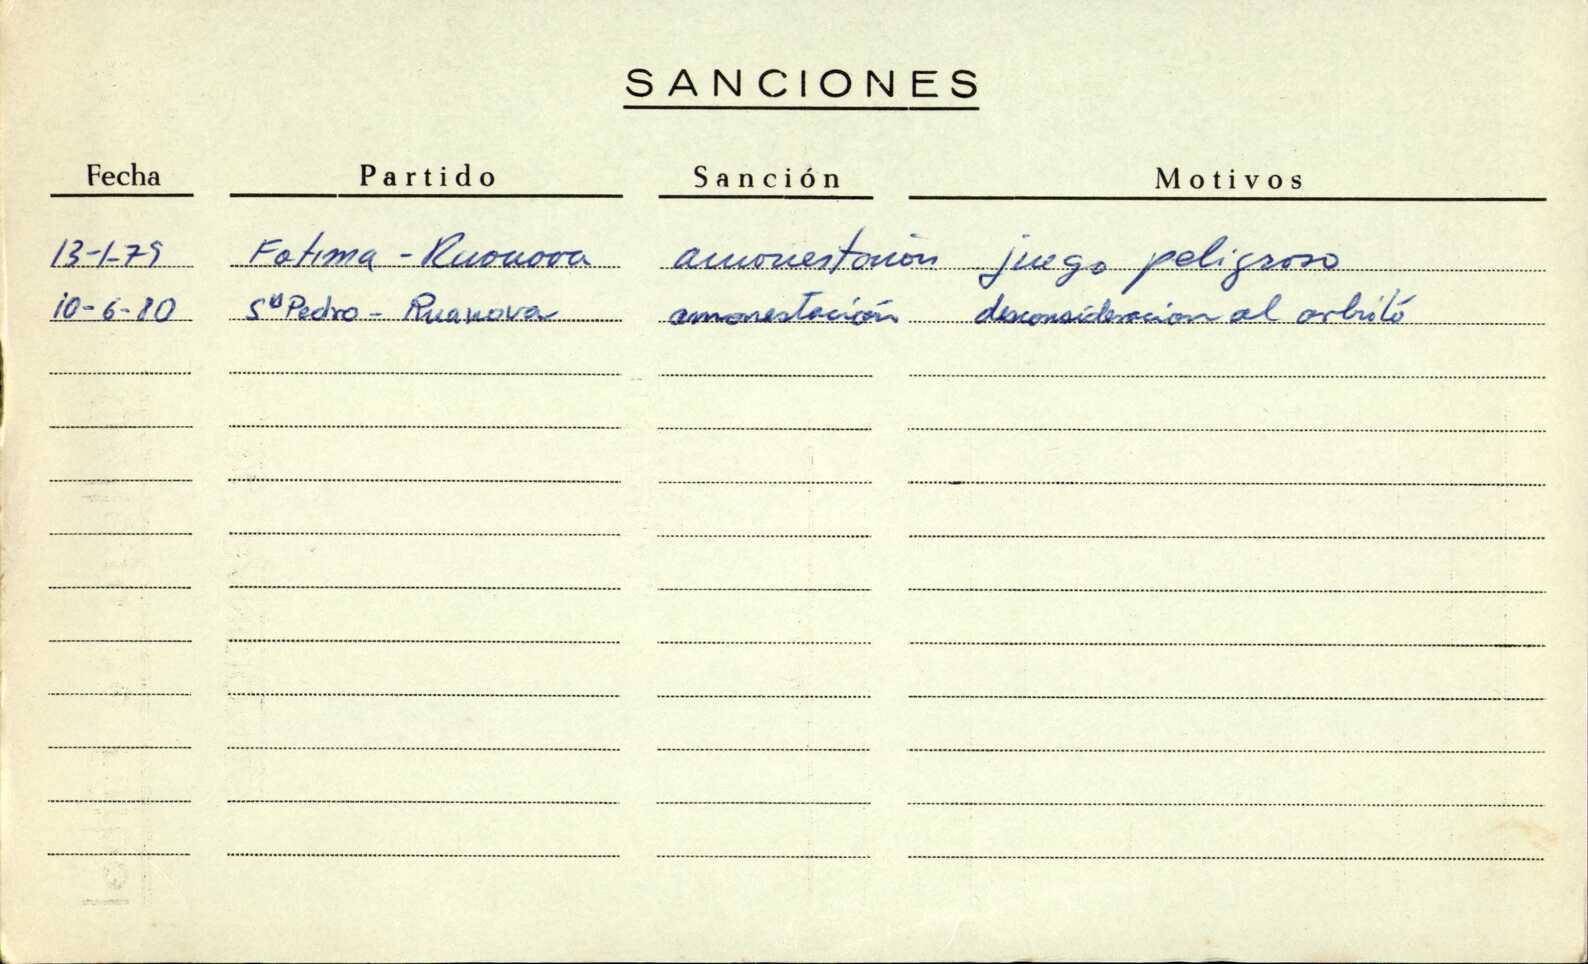 SANCIONES
Fecha Partido Sanción Motivos
13-1-79 Fatima - Ruanova amonestación juego peligroso
10-6-80 Sn Pedro - Ruanova amonestación desconsideracion al